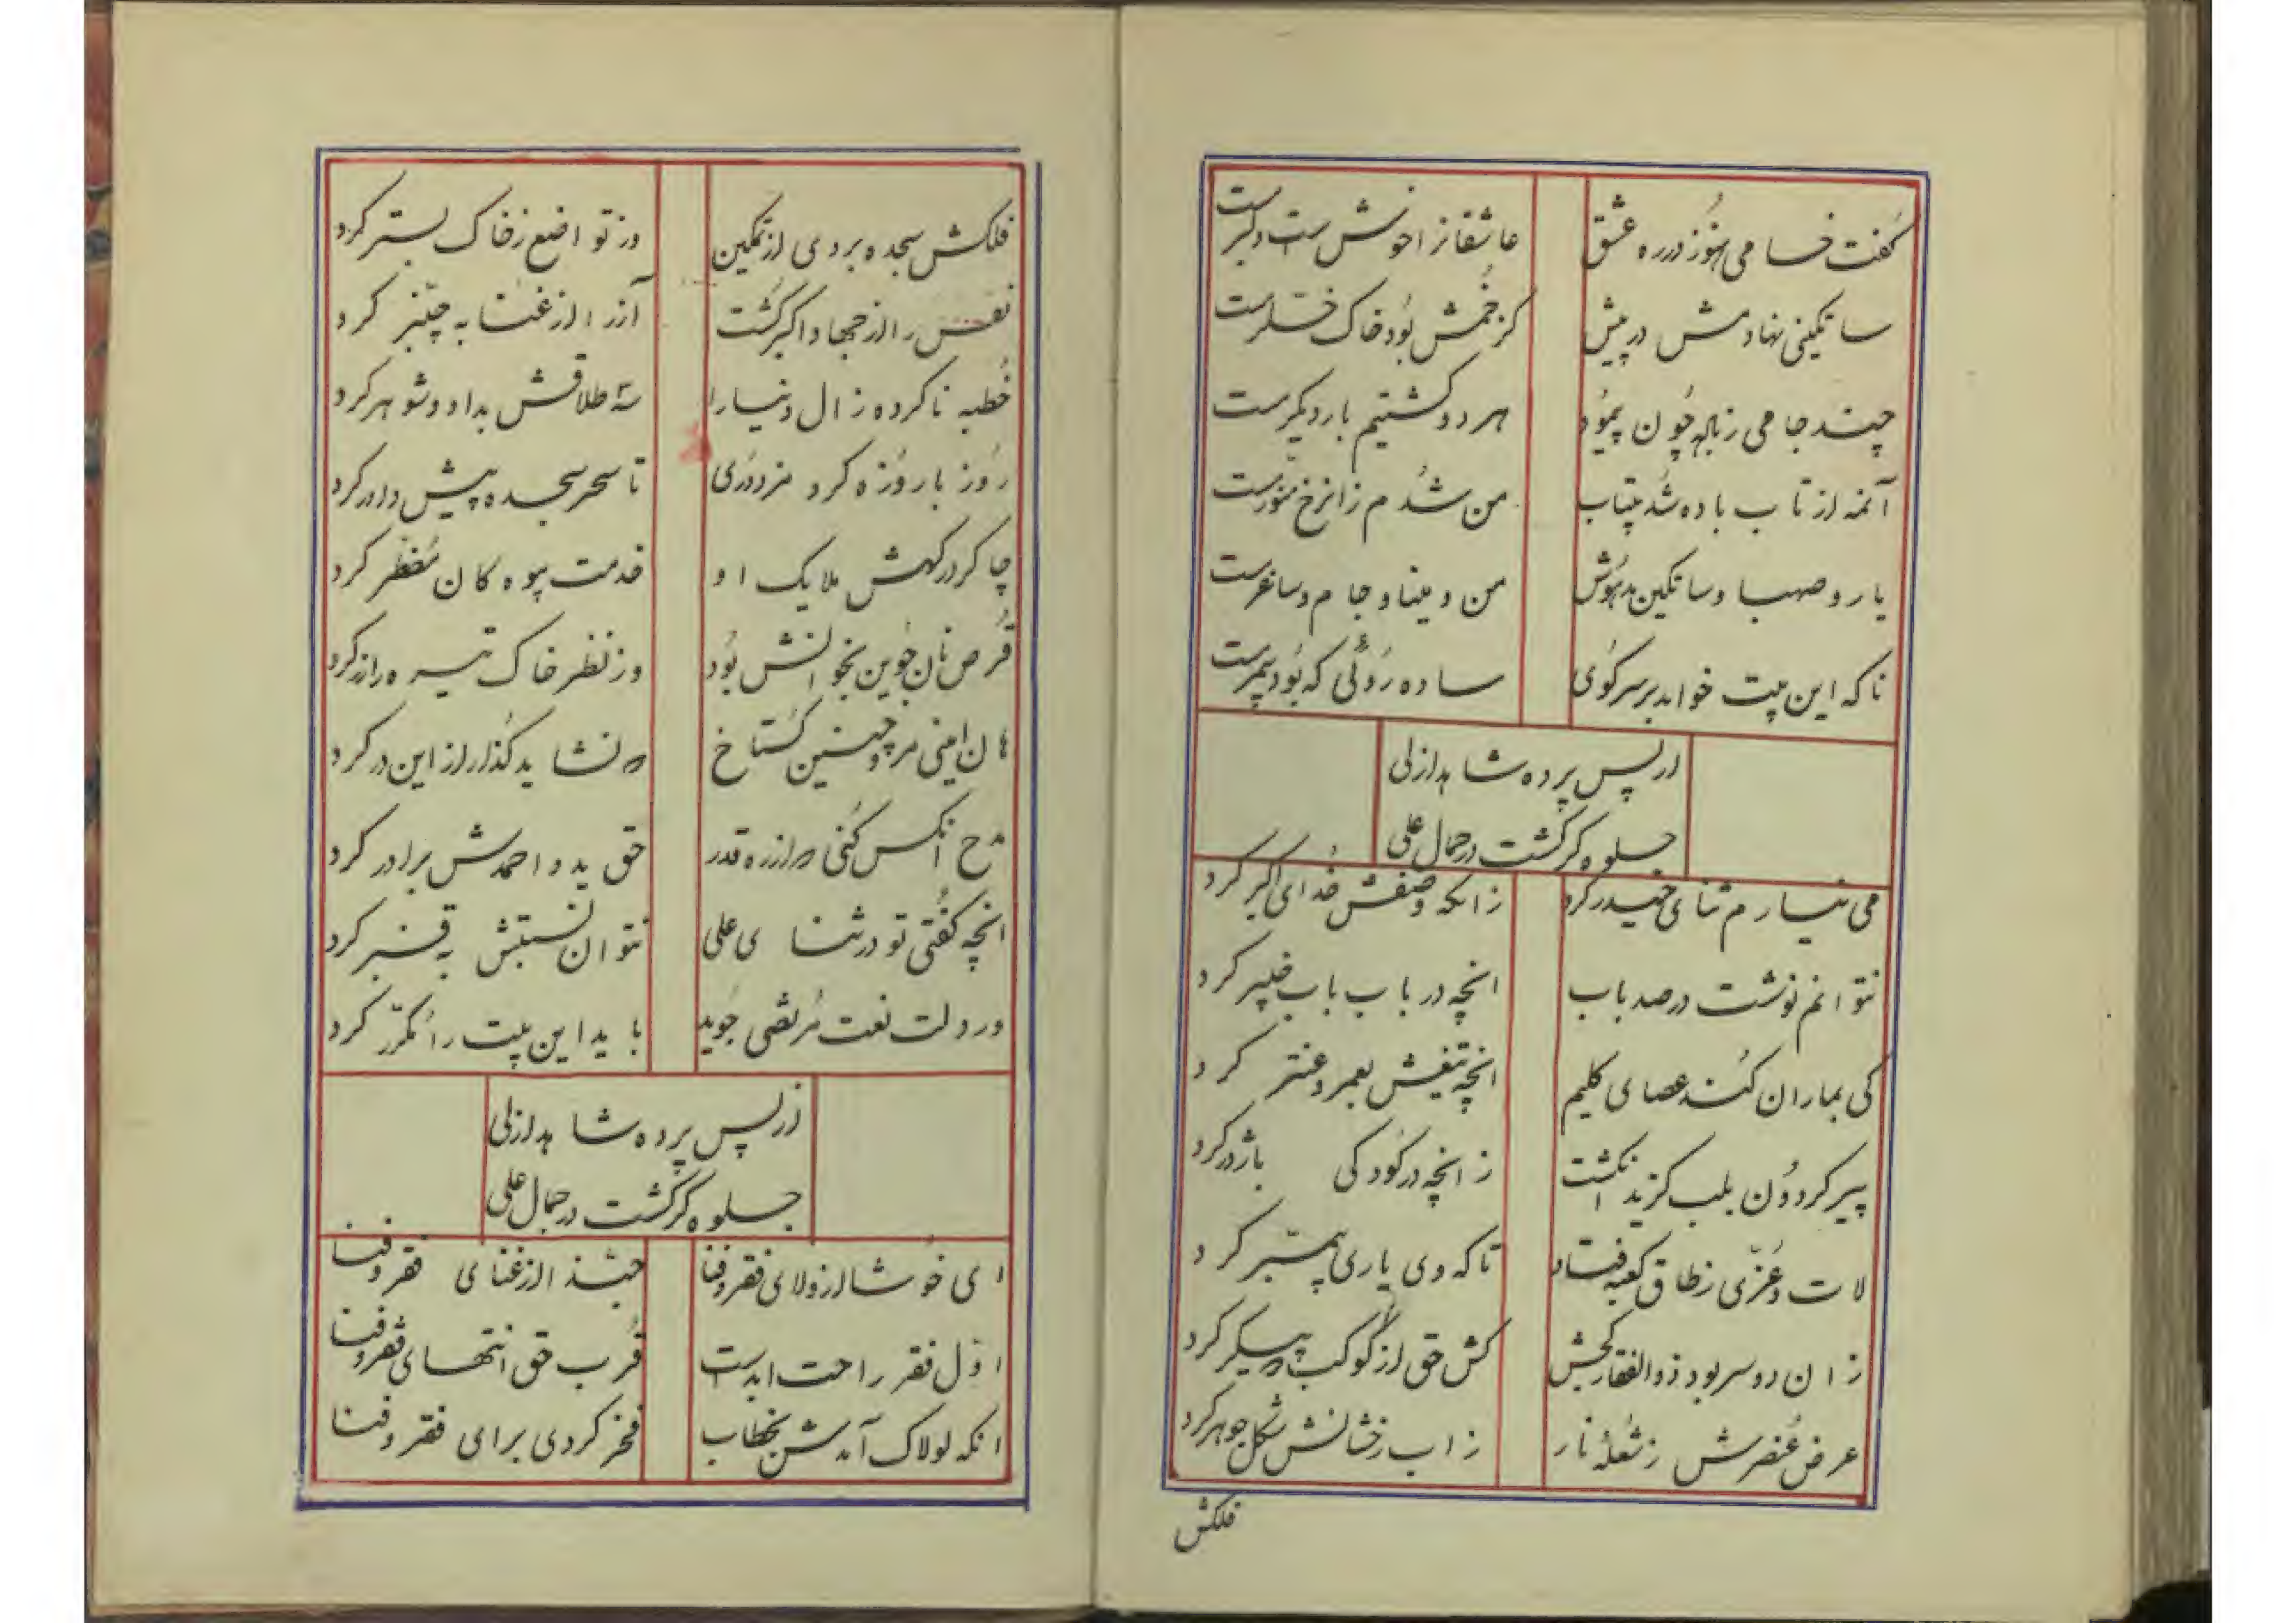 گفت خامی هنوز در ره عشق عاشقانرا خوشست و
ساتکینی نهادمش در پیش کز خمش بود خاک
چند جامی ز باله چون پیمود هر دو گشتیم بار دیگر مست
آنمه از تاب باده شد بیتاب من شدم زانرخ منور مست
یار و صهبا و ساتکین مدهوش من و مینا و جام و ساغر مست
ناکه این بیت خواند بر سر کوی ساده روئی که بود
از پس پرده شاهد ازلی
جلوه گر گشت در جمال علی
می نیارم ثنای حیدر کرد زانکه وصفش خدای اکبر کرد
نتوانم نوشت در صد باب انچه در باب باب خیبر کرد
کی بماران کند عصای کلیم انچه تیغش بعمر و عنتر کرد
پیر کردون بلب کزید انکشت ز انچه در کودکی باژدر کرد
لات و عزی ز طاق کعبه فتاد تا که وی یاری پیمبر کرد
زان دو سر بود ذوالفقار کجش کش حق از کوکب پیکر کرد
عرض عنصرش ز شعلهٔ نار زاب رخشانش شکل جوهر کرد
فلکش
فلکش سجده بردی از تمکین وز تواضع ز خاک بستر کرد
نفس را از جهاد اکبر کشت آز را از غنا به چنبر کرد
خطبه ناکرده زال دنیا را سه طلاقش بداد و شوهر کرد
روز با روزه کرد مزدوری تا سحر سجده پیش داور کرد
چاکر درگهش ملایک او خدمت بیوه کان مضطر کرد
قرص نان جوین بخوانش بود وز نظر خاک تیره را زر کرد
هان امینی مرو چنین گستاخ که نشاید گذار از این در کرد
مدح انکس کنی که از ره قدر حق ید و احمدش برادر کرد
انچه گفتی تو در ثنای علی نتوان نسبتش به قنبر کرد
ور دلت نعت مرتضی جوید باید این بیت را مکرّر کرد
از پس پرده شاهد ازلی
جلوه گر گشت در جمال علی
ای خوشا از ولای فقر و فنا حبّذا از غنای فقر و فنا
اوّل فقر راحت ابدست قرب حق انتهای فقر و فنا
انکه لولاک آمدش بخطاب فخر کردی برای فقر و فنا